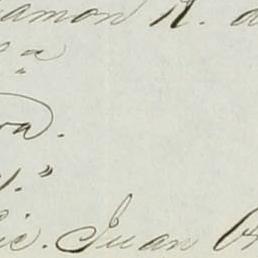 amon R. d
a
va.
y."
ic. Juan